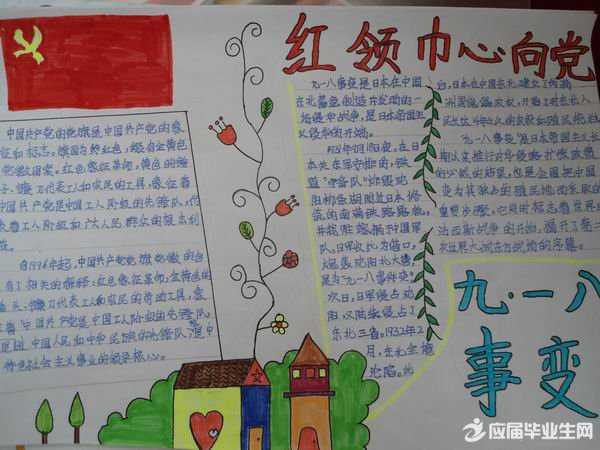 红领巾心向党
中国共产党的党旗是中国共产党的象
征和标志。旗面为红色,
党徽图案。红色象征革命,黄色的锤
子、镰刀代表工人和农民的工具,象征着
中国共产党是中国工人阶级的先锋队,代
表着工人阶级和广大人民群众的根本利
自1996年起,中国共产党党旗党徽的
红色象征革命;金黄色的
镰刀代表工人和农民的劳动工具,象
中国共产党是中国工人阶级的先锋队,
中国人民和中华民族的先锋队,是中
特色社会主义事业的领导核心。
九一八事变是日本在中国
东北蓄意制造并发动的一
场侵华战争,是日本帝国主
义侵华的开端。
1931年9月18日夜,在日
本关东军安排下,铁
道“守备队”炸毁沈
阳柳条湖附近日本修
筑的南满铁路路轨,
并栽赃嫁祸于中国军
队。日军以此为借口,
炮轰沈阳北大营,
是为“九一八事变”。
次日,日军侵占沈
阳,又陆续侵占了
东北三省。1932年2
月,东北全境
沦陷。此
后,日本在中国东北建立了伪满
洲国傀儡政权,开始了对东北人
民长达14年之久的奴役和殖民统治。
九一八事变是日本帝国主义长
期以来推行对华侵略扩张政策
的必然结果,也是企图把中国
变为其独占的殖民地而采取的
重要步骤。它同时标志着世界反
法西斯战争的开始,揭开了第二
次世界大战东方战场的序幕。
九·一八
事变
应届毕业生网